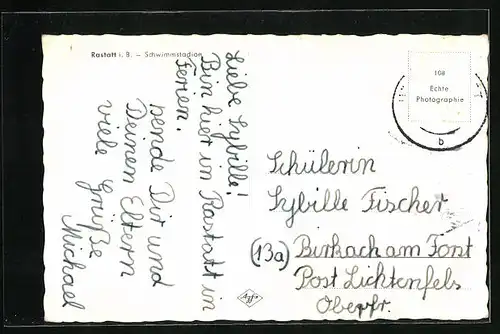 Rastatt i. B. – Schwimmstadion
Liebe Sybille!
Bin hier in Rastatt in
Ferien.
sende Dir und
Deinen Eltern
viele Grüße
Michael
108
Echte
Photographie
b
Schülerin
Sybille Fischer
(13a) Birkach am Forst
Post Lichtenfels
Oberfr.